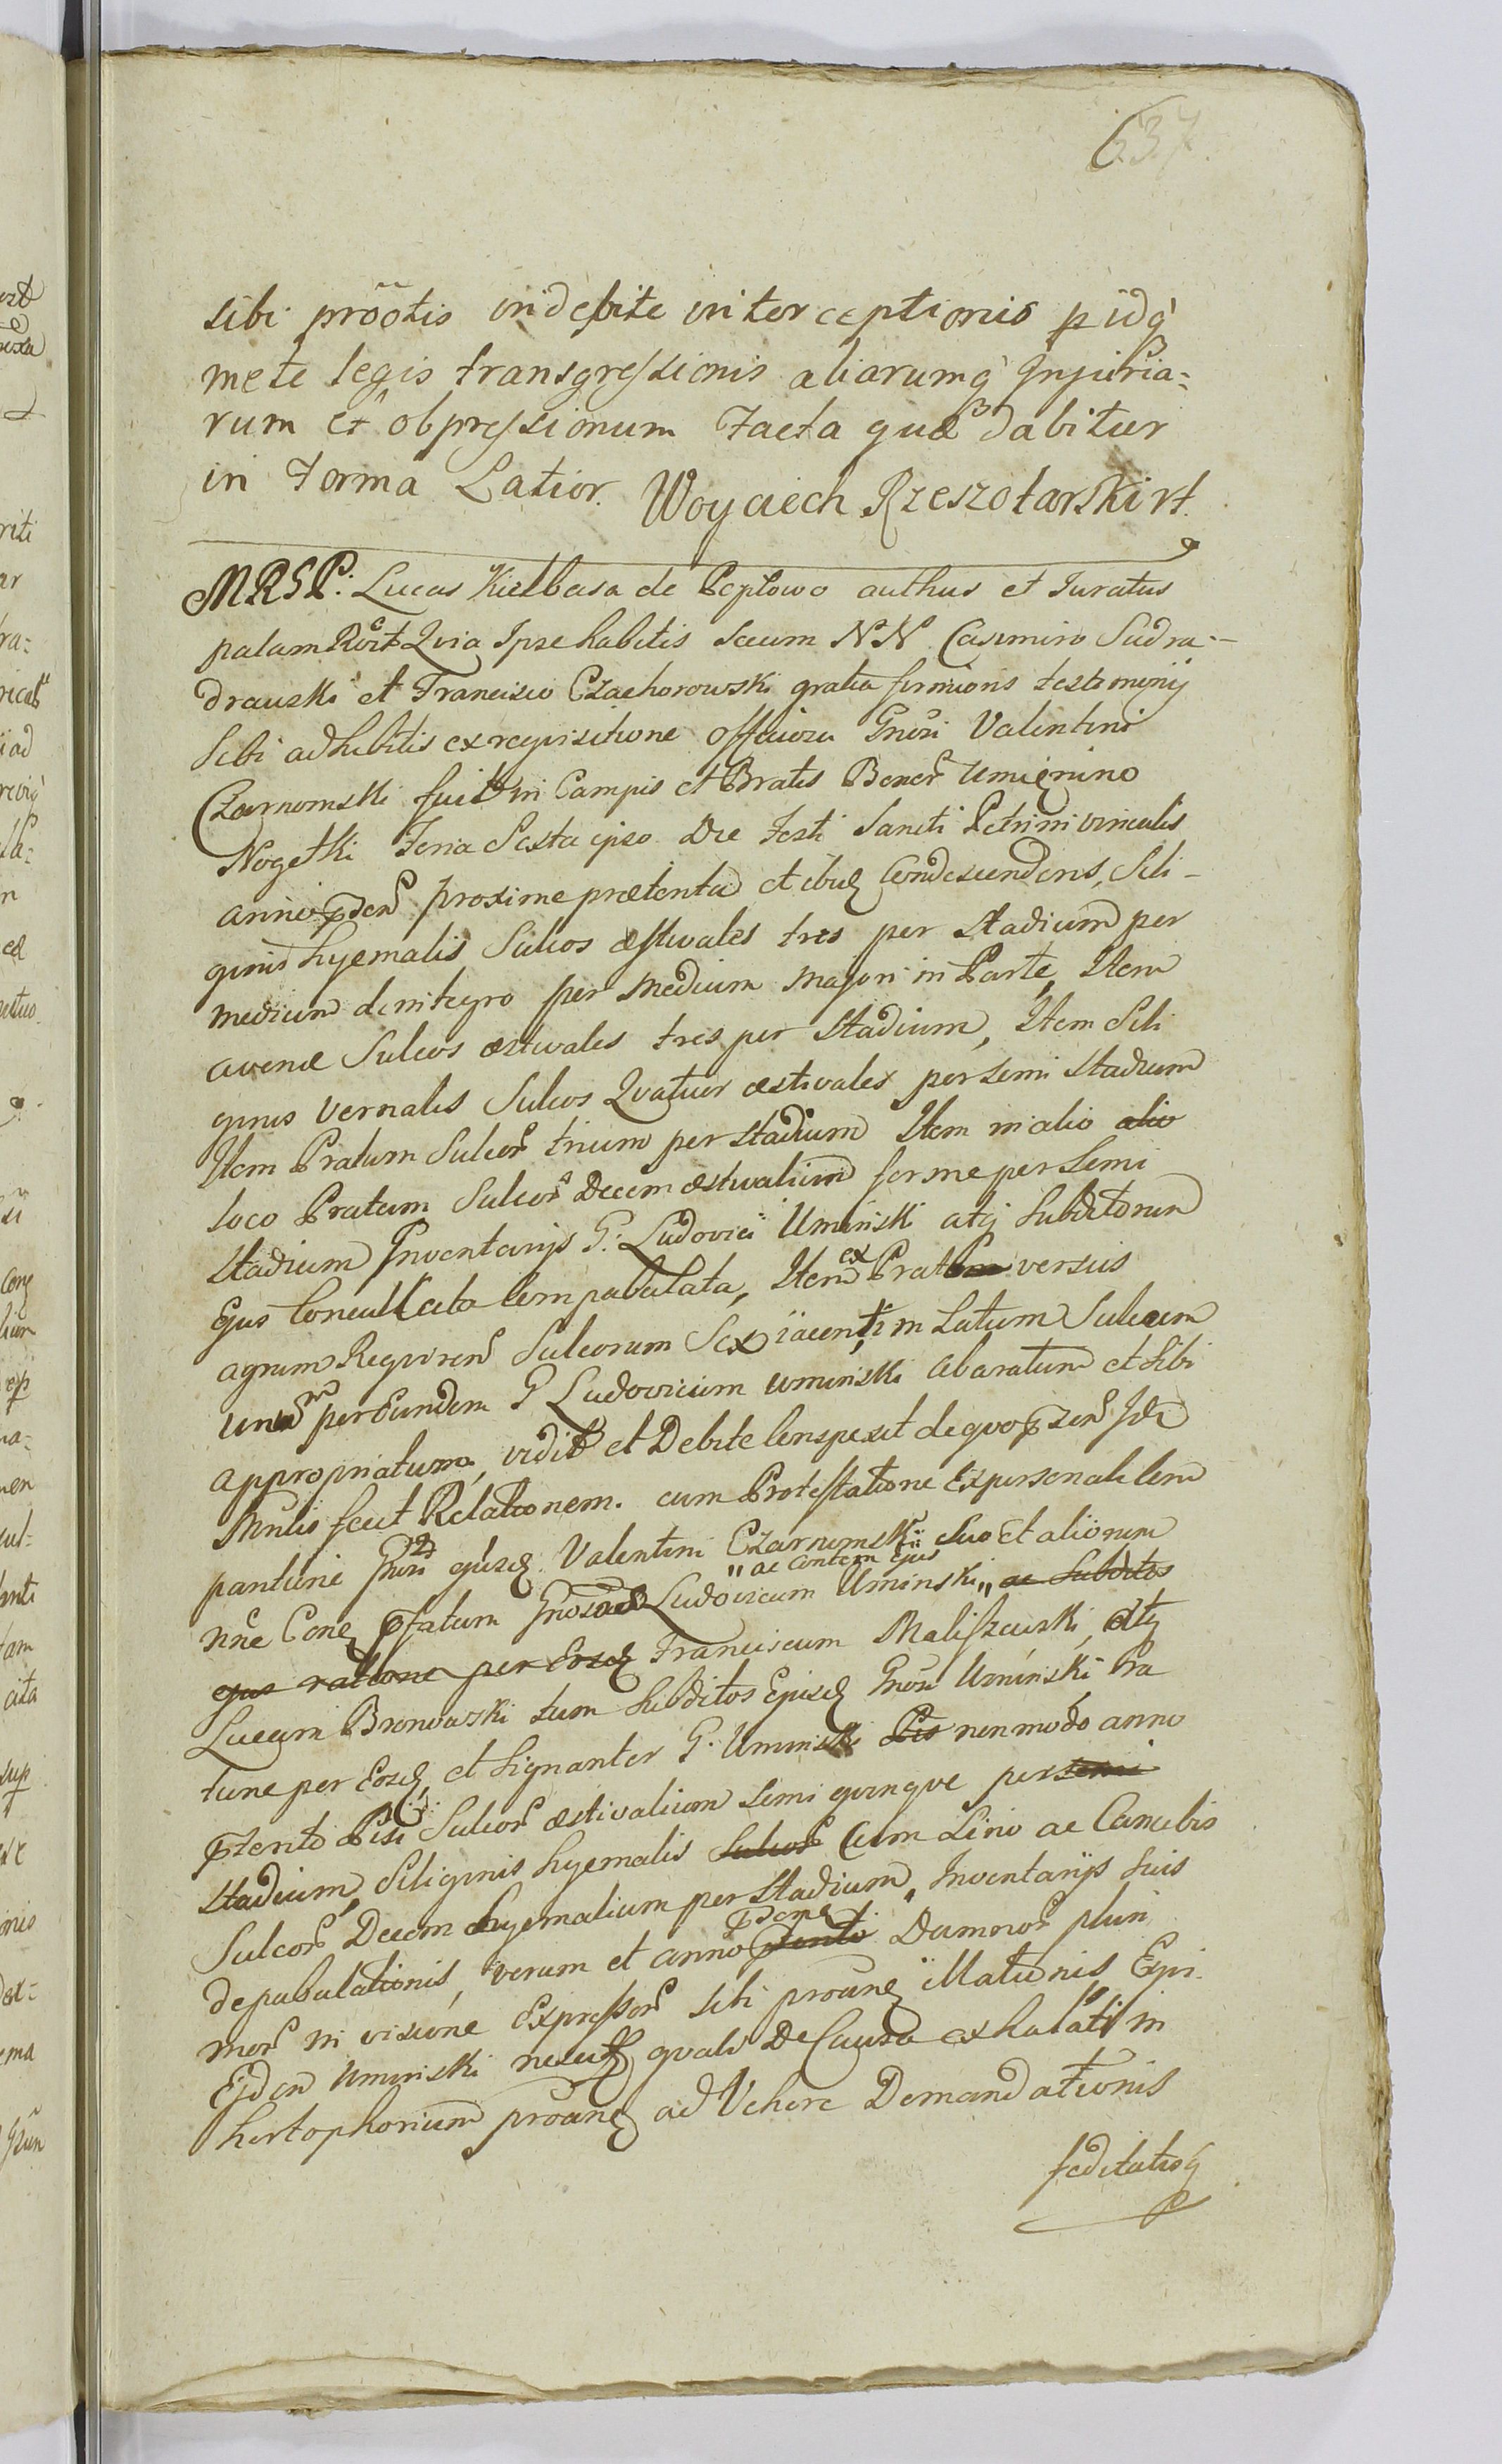 637.
sibi prõotis indebite interceptionis pidq̀
mete legis transgressionis aliarumq̀ Injuria=
rum et obpressionum facta quæ dabitur
in forma Latior. Woyciech Rzeszotarski vt.
MRSP: Lucas Kielbasa de Peplowo authus et Juratus
palam Rvit Qvia Ipse habitis secum NN Casimiro Sudra-
drauski et Francisco Czachorowski gratia firmioris testimonij
Sibi adhibitis ex reqvisitione officiosa Gnõsi Valentini
Czarnomski fuit in Campis et Pratis Bonor Umienino
Nogetki feria Sexta ipso Die festi Sancti Petri in vinculis
anni proxime prætenta et ibid Condescendens, Sili-
ginis hyemalis Sulcos æstivales tres per Stadium per
medium de integro per medium majori in Parte, Item
avenæ Sulcos æstivales tres per Stadium, Item Sili
ginis vernalis Sulcos Qvatuor æstivales per semi Stadium
Item Pratum Sulcor trium per Stadium Item in alio alio
loco Pratum Sulcor Decem æstivalium ferme per Semi
Stadium Inventarijs G: Ludovici Uminski atq subditorum
Ejus Conculcata Compabulata, Item ex Prato versus
agrum Reqviren Sulcorum Sex iacenti in Latum Sulcum
unum per Eundem G Ludovicum Uminski abaratum et sibi
appropriatum, vidit et Debite Conspexit de qvo
fecit Relationem. cum Protestatione Ex personali Com
Gnõsi ejusd Valentini Czarnomski Suo et aliorum
nñe Cone Gnosum Ludovicum Uminski " ac Contem ejus " ac Subditos
ejus ratione per Eosd Franciscum Maliszewski, atq
Lucam Bronowski tum Subditos Ejusd Gnõsi Uminski Ra
tune per Eosd, et Signanter G. Uminski Pis non modo anno
Pisi Sulcor æstivalium Semi qvinqve per semi
Stadium, Siliginis hyemalis Sulcor Cum Lino ac Canabis
Sulcor Decem hyemalium per Stadium, Inventarijs suis
depabulationis, verum et anno Damnor pluri
mor in visione Expressor sibi illationis Equi
Ejden Uminski qvali De Causa exhalati in
ad Vehere Demandationis
feditatisq